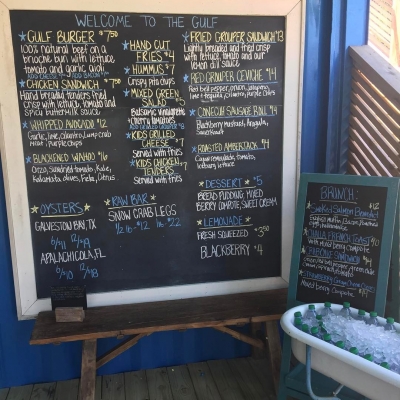 WELCOME TO THE GULF
GULF BURGER $7.50
100% natural beef on a
brioche bun with lettuce
tomato and garlic aioli
ADD CHEESE ADD BACON
CHICKEN SANDWICH $7.50
Hand breaded tenders fried
crisp with lettuce, tomato and
Spicy buttermilk sauce
WHIPPED AVOCADO $12
Garlic, lime, cilantro, Jump crab
meat, purple chips
BLACKENED WAHOO $16
Orzo, Sundried tomato, Kale,
Kalamata, olives, Feta, Citrus
OYSTERS
GALVESTON BAY, TX
6/$11 12/$19
APALACHICOLA, FL
6/$10 12/$18
HAND CUT
FRIES $4
HUMMUS $7
Crispy pita chips
MIXED GREEN
SALAD $5
Balsamic vinaigrette
cherry tomatoes
KIDS GRILLED
CHEESE $7
Served with fries
KIDS CHICKEN
TENDERS $7
Served with fries
RAW BAR
SNOW CRAB LEGS
1/2 lb - $12 1 lb - $22
FRIED GROUPER SANDWICH $13
Lightly breaded and fried crisp
with lettuce, tomato and our
lemon dill sauce
RED GROUPER CEVICHE $14
Red bell pepper, onion, jalapeno,
lime + tequila, cilantro, purple chips
CONECUH SAUSAGE ROLL $9
Blackberry mustard, Arugula,
Sauerkraut
ROASTED AMBERJACK $4
Cajun remoulade, tomato,
lettuce, lemon
DESSERT $5
BREAD PUDDING, MIXED
BERRY COMPOTE, SWEET CREAM
LEMONADE
FRESH SQUEEZED $3.50
BLACKBERRY $4
BRUNCH:
Smoked Salmon Benedict $12
CHALLA FRENCH TOAST $10
with mixed berry compote
Mixed berry Compote